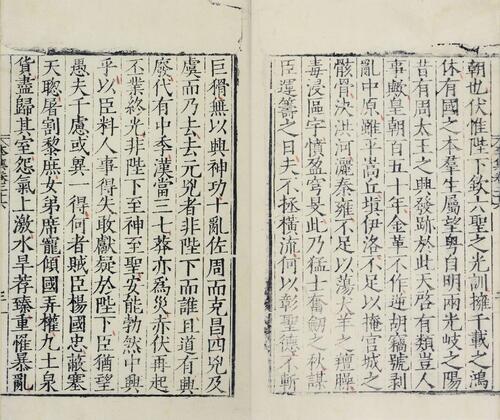 朝也伏惟陛下欽六聖之光訓擁千載之鴻
休有國之本羣生屬望粤自明兩光岐之陽
昔有周太王之興發跡於此天啓有類豈人
事歟皇朝百五十年金革不作逆胡竊號剥
亂中原雖平嵩丘塡伊洛不足以掩宫城之
骸骨決洪河灑秦雍不足以蕩犬羊之羶臊
毒浸區宇憤盈穹旻此乃猛士奮劒之秋謀
臣運籌之日夫不拯橫流何以彰聖德不斬
巨猾無以興神功十亂佐周而克昌四凶及
虞而乃去去元兇者非陛下而誰且道有興
廢代有中季漢當三七莽亦爲災赤伏再起
丕業終光非陛下至神至聖安能勃然中興
乎以臣料人事得失敢獻疑於陛下臣猶望
愚夫千慮或異一得何者賊臣楊國忠蔽塞
天聰屠割黎庶女弟席寵傾國弄權九土泉
貨盡歸其室怨氣上激水旱荐臻重惟暴亂